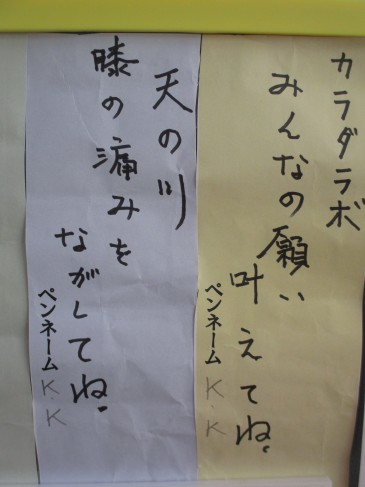 カラダラボ
みんなの願い
叶えてね。
ペンネーム K.K
天の川
膝の痛みを
ながしてね。
ペンネーム K.K